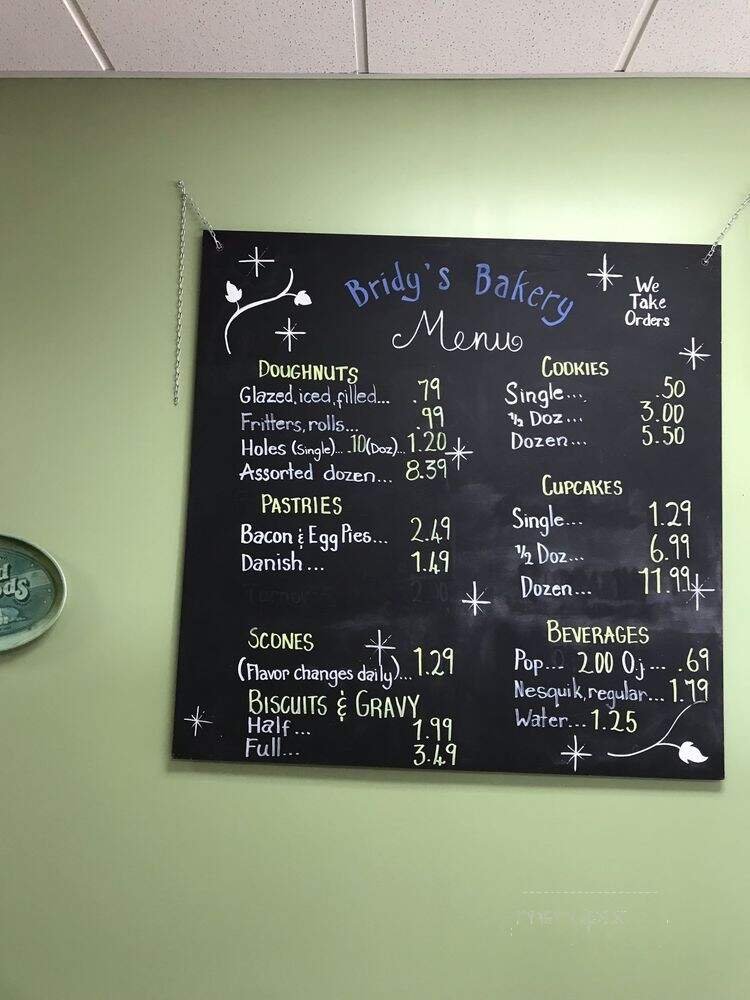 Bridy's Bakery
Menu
We
Take
Orders
DOUGHNUTS
Glazed, iced, filled... .79
Fritters, rolls... .99
Holes (Single)... .10 (Doz)... 1.20
Assorted dozen... 8.39
PASTRIES
Bacon & Egg Pies... 2.49
Danish... 1.49
SCONES
(Flavor changes daily)... 1.29
BISCUITS & GRAVY
Half... 1.99
Full... 3.49
COOKIES
Single... .50
1/2 Doz... 3.00
Dozen... 5.50
CUPCAKES
Single... 1.29
1/2 Doz... 6.99
Dozen... 11.99
BEVERAGES
Pop... 2.00 O.j... .69
Nesquik, regular... 1.79
Water... 1.25